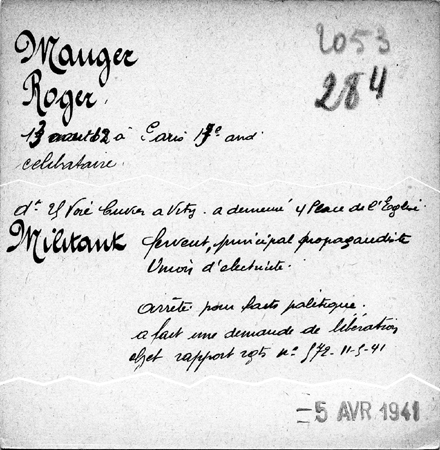 2053
284
Mauger
Roger
13 à Paris 13e arrd
celibataire.
dt Voie Cuvier a Vitry. a demeuré 4 Place de l'Eglise
Militant fervent, municipal propagandiste
Union d'electricité.
arrêté pour faits politique.
a fait une demande de libération
objet rapport rgts n° 572-11-3-41
5 AVR 1941